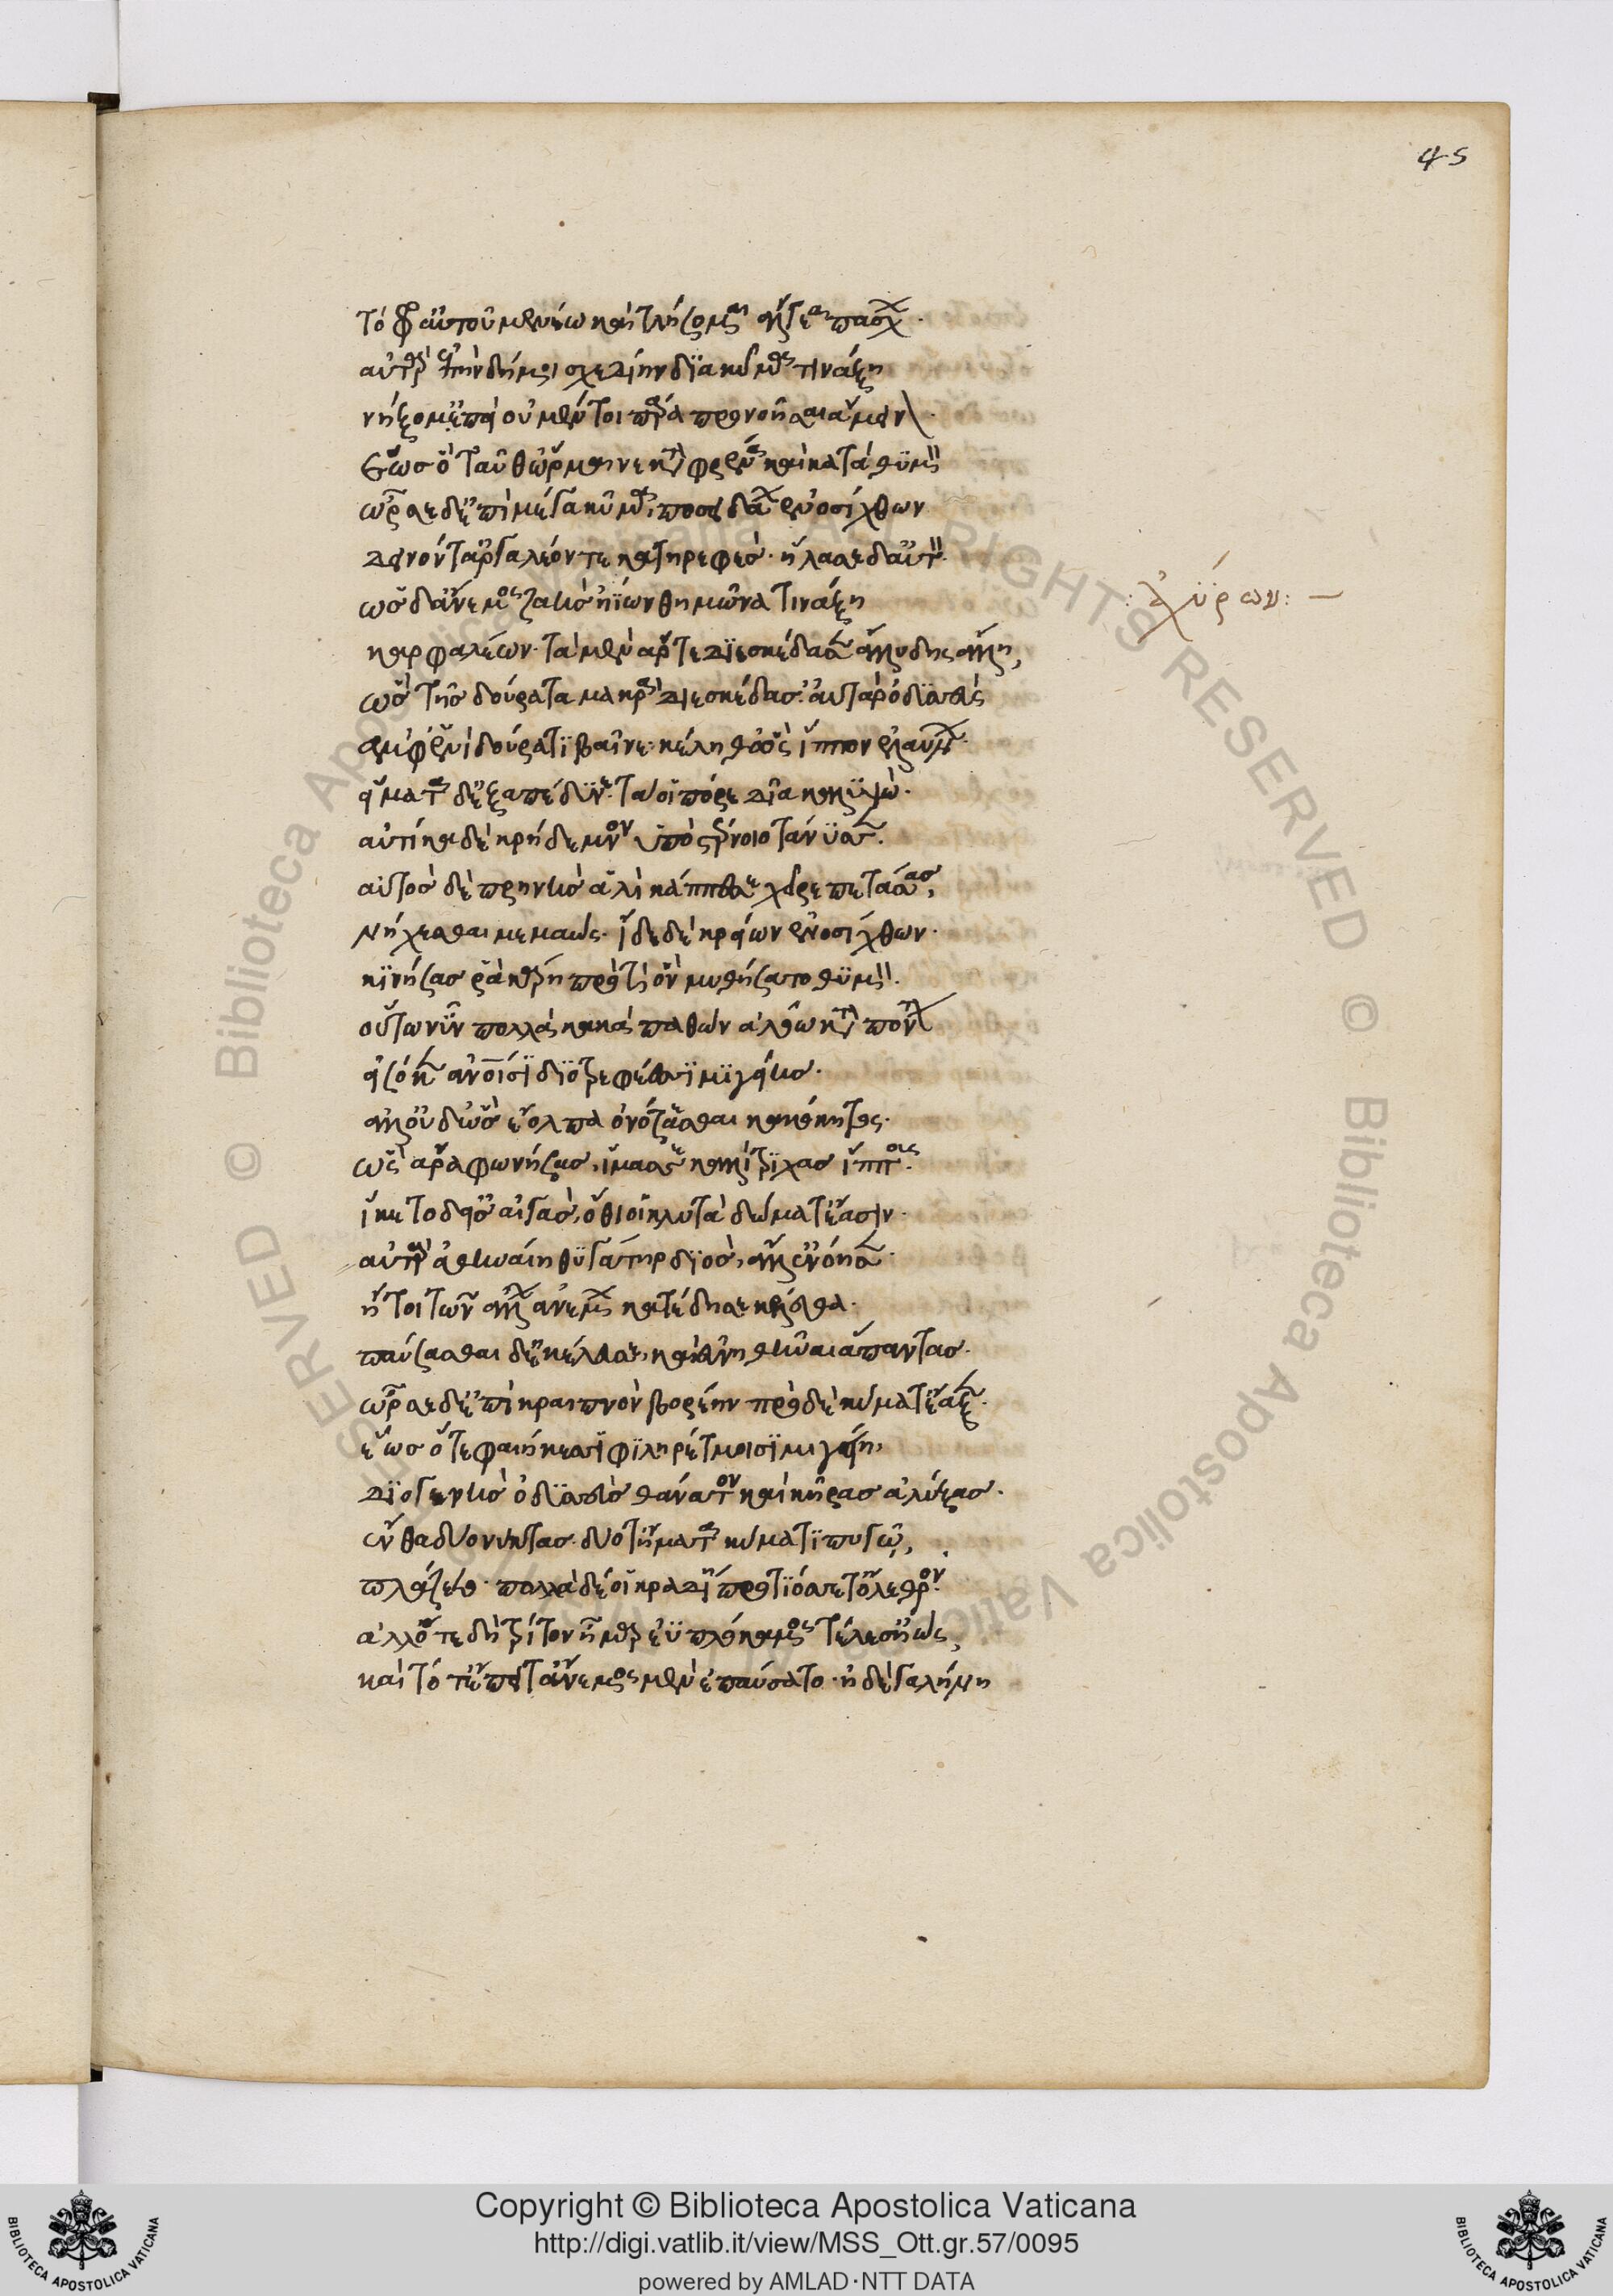 45
τόφρ' αὐτοῦ μενέω καὶ τλήσομαι ἄλγεα πάσχων.
αὐτὰρ ἐπὴν δή μοι σχεδίην διὰ κῦμα τινάξη
νήξομ' ἐπεὶ οὐ μέν τοι πάρα προνοῆσαι ἄμεινον.
ἕως ὁ ταῦθ' ὥρμηνε κατὰ φρένα καὶ κατὰ θυμόν
ὦρσε δ' ἐπὶ μέγα κῦμα, ποσειδάων ἐνοσίχθων
δεινόν τ' ἀργαλέον τε κατηρεφές· ἤλασε δ' αὐτόν.
ὡς δ' ἄνεμος ζαὴς ἠίων θημῶνα τινάξη
: ἀχύρων : –
καρφαλέων· τὰ μὲν ἄρ τε διεσκέδασ' ἄλλυδις ἄλλη,
ὣς τῆς δούρατα μακρὰ διεσκέδασ'. αὐτὰρ ὀδυσσεὺς
ἀμφ' ἑνὶ δούρατι βαῖνε· κέληθ' ὡς ἵππον ἐλαύνων.
εἵματα δ' ἐξαπέδυνε· τά οἱ πόρε δῖα καλυψώ.
αὐτίκα δὲ κρήδεμνον ὑπὸ στέρνοιο τάνυσσεν.
αὐτὸς δὲ πρηνὴς ἁλὶ κάππεσε χεῖρε πετάσσας,
νήχεσθαι μεμαώς· ἴδε δὲ κρείων ἐνοσίχθων·
κινήσας ῥα κάρη προτὶ ὃν μυθήσατο θυμόν.
οὕτω νῦν πολλὰ κακὰ παθὼν ἀλόω κατὰ πόντον
εἰσόκεν ἀνθρώποισι διοτρεφέεσσι μιγείης.
ἀλλ' οὐδ' ὥς σ' ἔολπα ὀνόσσεσθαι κακότητος.
ὣς ἄρα φωνήσας, ἵμασεν καλλίτριχας ἵππους.
ἵκετο δ' εἰς αἰγάς, ὅθι οἱ κλυτὰ δώματ' ἔασιν.
αὐτὰρ ἀθηναίη θυγάτηρ διός, ἄλλ' ἐνόησεν.
ἤτοι τῶν ἄλλων ἀνέμων κατέδησε κέλευθα.
παύσασθαι δ' ἐκέλευσε, καὶ εὐνηθῆναι ἅπαντας.
ὦρσε δ' ἐπὶ κραιπνὸν βορέην πρὸ δὲ κύματ' ἔαξεν.
ἕως ὅτε φαιήκεσσι φιληρέτμοισι μιγείη,
διογενὴς ὀδυσσεὺς θάνατον καὶ κῆρας ἀλύξας.
ἔνθα δύο νύκτας δύο τ' ἤματα κύματι πηγῶ,
πλάζετο· πολλὰ δέ οἱ κραδίη προτιόσσετ' ὄλεθρον.
ἀλλ' ὅτε δὴ τρίτον ἦμαρ ἐυπλόκαμος τέλεσ' ἠώς,
καὶ τότ' ἔπειτ' ἄνεμος μὲν ἐπαύσατο· ἡ δὲ γαλήνη
© Biblioteca Apostolica Vaticana ALL RIGHTS RESERVED © Biblioteca Apostolica Vaticana ALL RIGHTS RESERVED
BIBLIOTECA APOSTOLICA VATICANA
Copyright © Biblioteca Apostolica Vaticana
http://digi.vatlib.it/view/MSS_Ott.gr.57/0095
powered by AMLAD·NTT DATA
BIBLIOTECA APOSTOLICA VATICANA